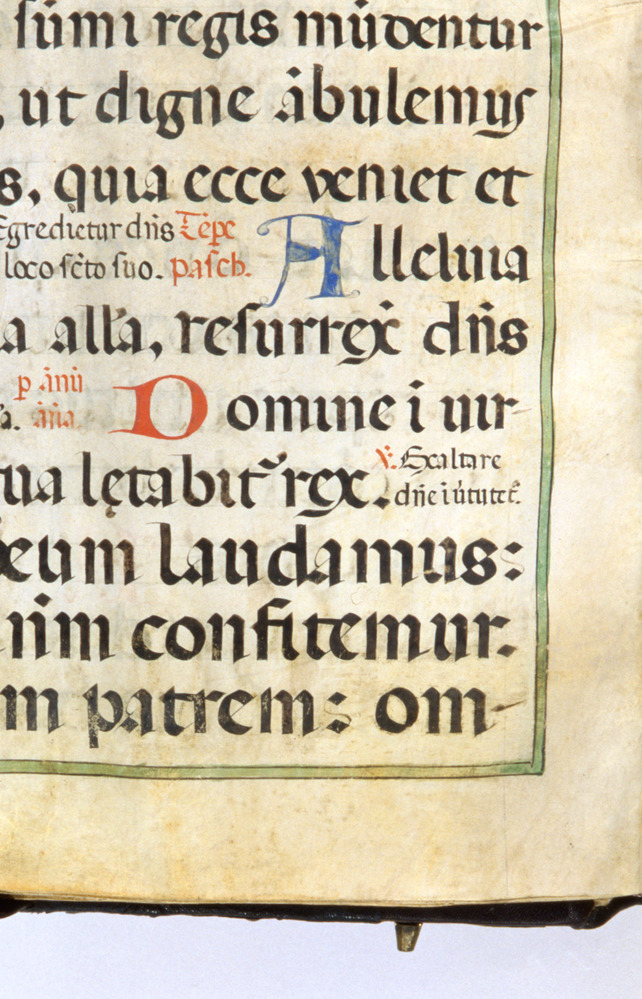 sūmi regis mūdentur
, ut digne ābulemus
s, quia ecce veniet et
Egredietur dn̄s Tēpe
loco sc̄to suo. pasch. Alleluia
a all'a, resurrex̄ dn̄s
p ānū
a. āña Domine ī uir-
tua lętabit᷑ rex. ℣. Exaltare
dn̄e ī ūtute t̄.
eum laudamus:
nūm confitemur.
m patrem: om-